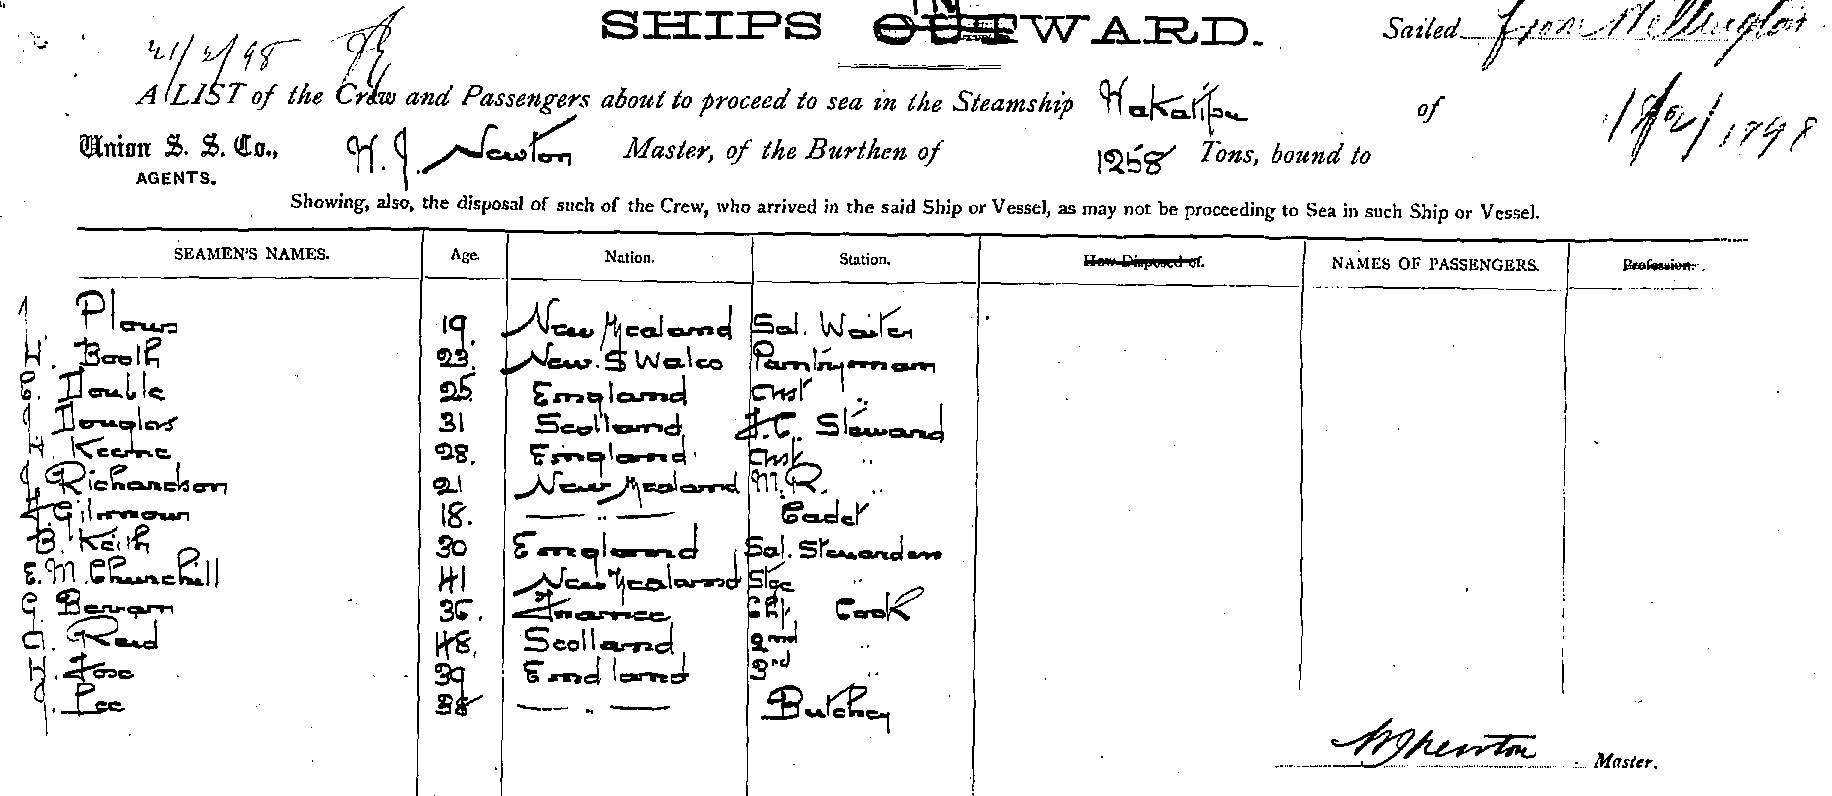 SHIPS INWARD. Sailed from Wellington
21/2/98
A LIST of the Crew and Passengers about to proceed to sea in the Steamship Wakatipu of
Union S. S. Co., W. J. Newton Master, of the Burthen of 1258 Tons, bound to
AGENTS.
Showing, also, the disposal of such of the Crew, who arrived in the said Ship or Vessel, as may not be proceeding to Sea in such Ship or Vessel.
SEAMEN'S NAMES. Age. Nation. Station. How Disposed of. NAMES OF PASSENGERS. Profession.
Plows 19. New Zealand Sal. Waiter
H. Booth 23. New. S Wales Pantryman
C. Double 25. England Asst "
J Douglas 31 Scotland F.C. Steward
H. Keene 28. England Asst "
J. Richardson 21 New Zealand M.R. "
F. Gilmour 18. — " — Cadet
B. Keith 30 England Sal. Stewardess
E. M. Churchill 41 New Zealand Stge "
G. 36. France Chf. Cook
G. Reid 48. Scotland 2nd "
H. Fose 39 England 3rd "
J. Lee — " — Butcher
W J Newton Master.